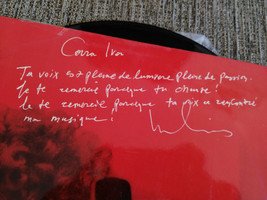 Cara Iva
Ta voix est pleine de lumière pleine de passion.
Je te remercie parceque tu chante!
Je te remercie parceque ta voix a rencontré
ma musique!